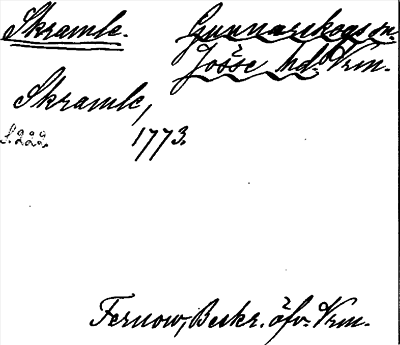 Skramle. Gunnarskogs sn.
Jösse hd. Vrm.
Skramle,
S. 222. 1773.
Fernow, Beskr. öfv. Vrm.